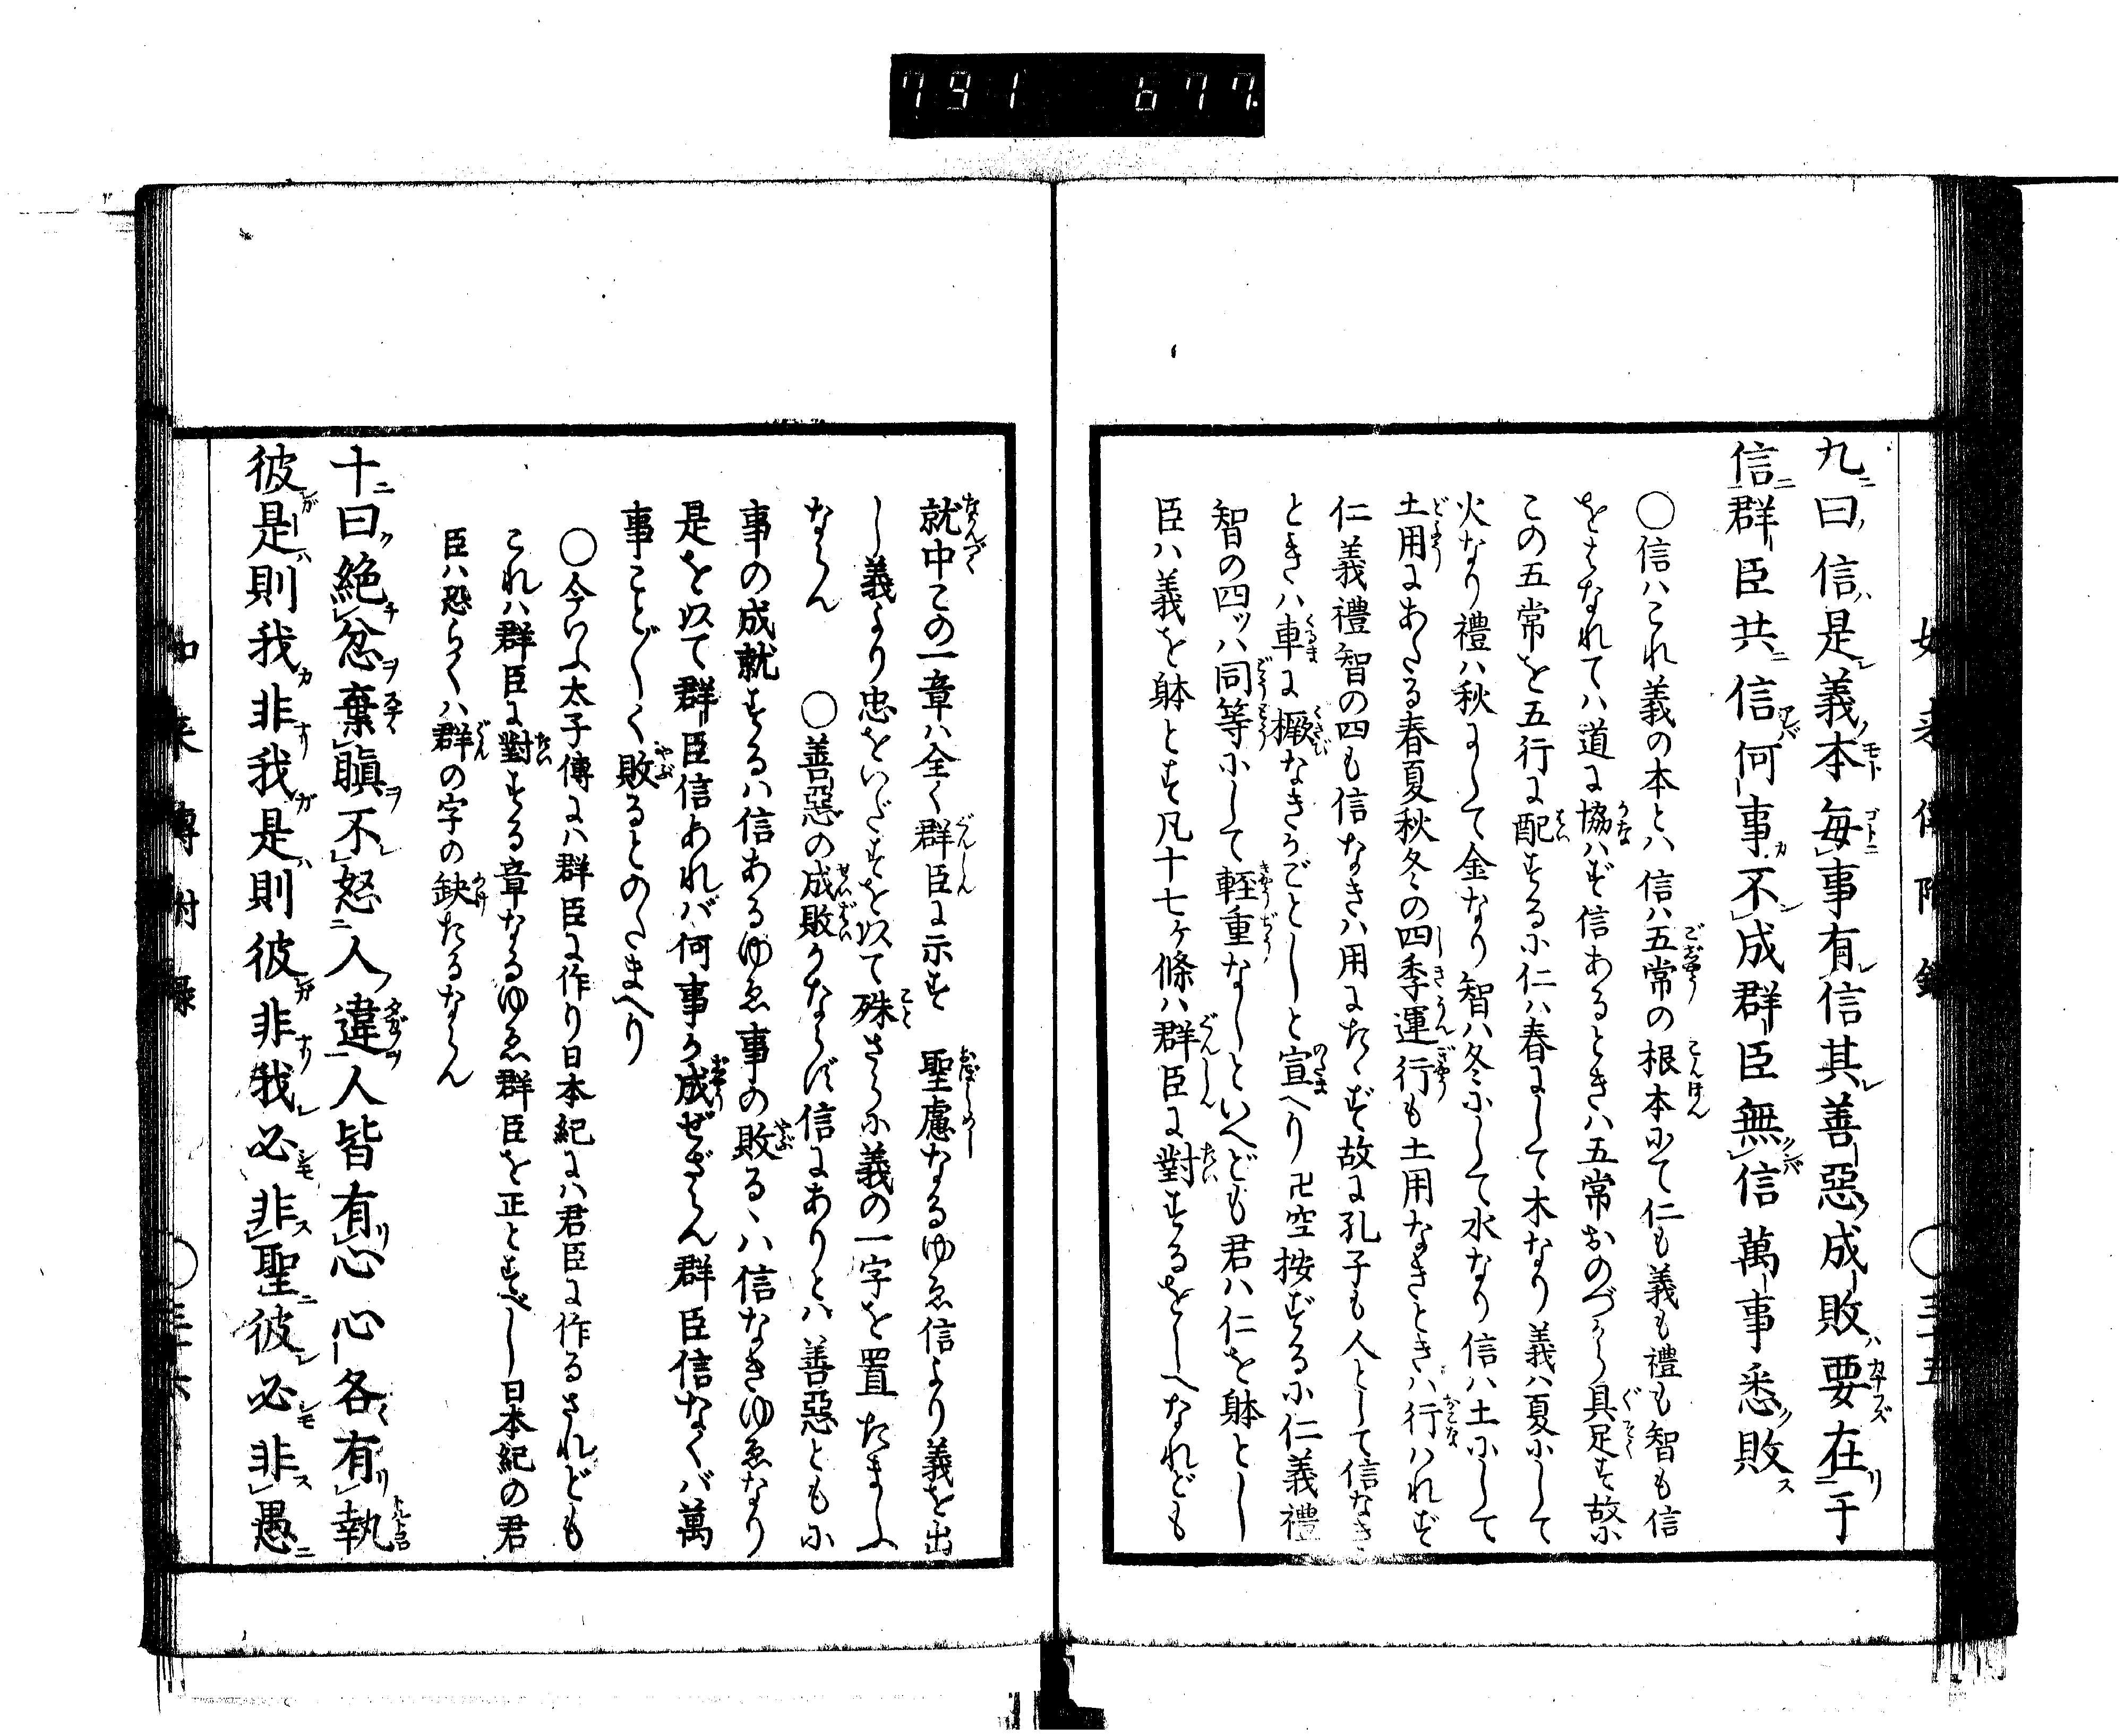 791 677
九曰信是義本毎事有信其善惡成敗要在于
信群臣共信何事不成群臣無信萬事悉敗
○信ハこれ義の本とハ信ハ五常の根本にて仁も義も禮も智も信
をはなれてハ道に協ハず信あるときハ五常おのづから具足す故に
この五常を五行に配するに仁ハ春にして木なり義ハ夏にして
火なり禮ハ秋にして金なり智ハ冬にして水なり信ハ土にして
土用にあたる春夏秋冬の四季運行も土用なきときハ行ハれず
仁義禮智の四も信なきハ用にたゝず故に孔子も人として信なき
ときハ車に橛なきがごとしと宣へり卍空按ずるに仁義禮
智の四ッハ同等にして軽重なしといへども君ハ仁を躰とし
臣ハ義を躰とす凡十七ヶ條ハ群臣に對するをしへなれども
就中この一章ハ全く群臣に示す 聖慮なるゆゑ信より義を出
し義より忠をいだすを以て殊さらに義の一字を置たまふ
ならん ○善惡の成敗かならず信にありとハ善惡ともに
事の成就するハ信あるゆゑ事の敗るゝハ信なきゆゑなり
是を以て群臣信あれバ何事か成ぜざらん群臣信なくバ萬
事こと〴〵く敗るとのたまへり
○今いふ太子傳にハ群臣に作り日本紀にハ君臣に作るされども
これハ群臣に對する章なるゆゑ群臣を正とすべし日本紀の君
臣ハ恐らくハ群の字の缺たるならん
十曰絶忿棄瞋不怒人違人皆有心心各有執
彼是則我非我是則彼非我必非聖彼必非愚